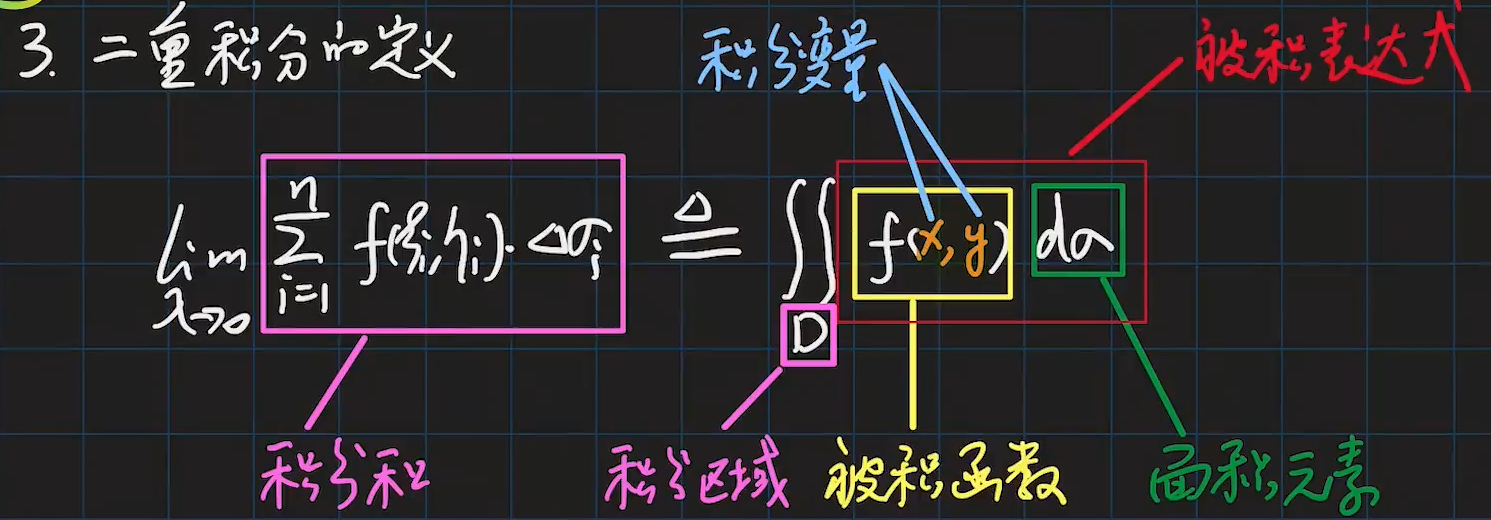 3. 二重积分的定义
积分变量
被积表达式
lim λ→0 n Σ i=1 f(ξi,ηi)·Δσi ≜ ∬ D f(x,y) dσ
积分和
积分区域
被积函数
面积元素